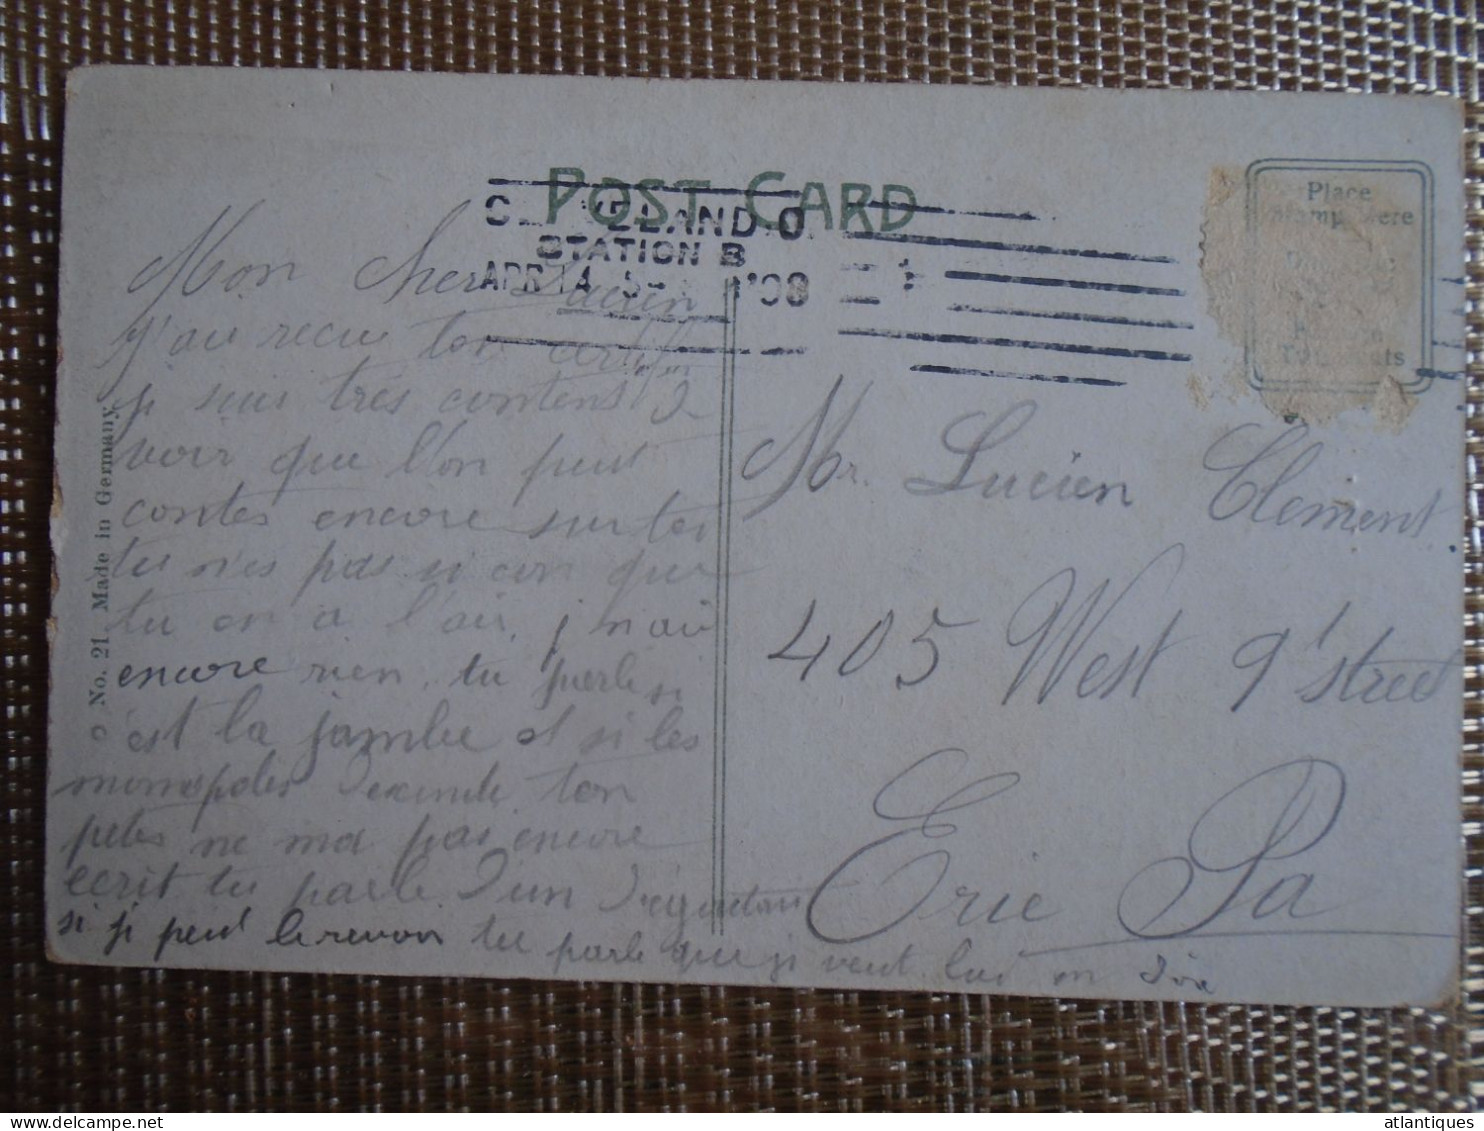 POST CARD
CLEVELAND O.
STATION B
APR 14 5- '08
Place
Stamp Here
No. 21. Made in Germany.
Mon cher Lucien
j'ai recu ton certifi
je suis très contens d
voir que l'on peut
contes encore sur toi
tu n'es pas si con que
tu en a l'air, j n'ai
encore rien. tu parle si
c'est la jambe et si les
ton
petes ne ma pas encore
ecrit tu parle d'un
si je peut le revoir tu parle que je veut lui en dire
Mr. Lucien Clement
405 West 9t street
Erie Pa
atlantiques